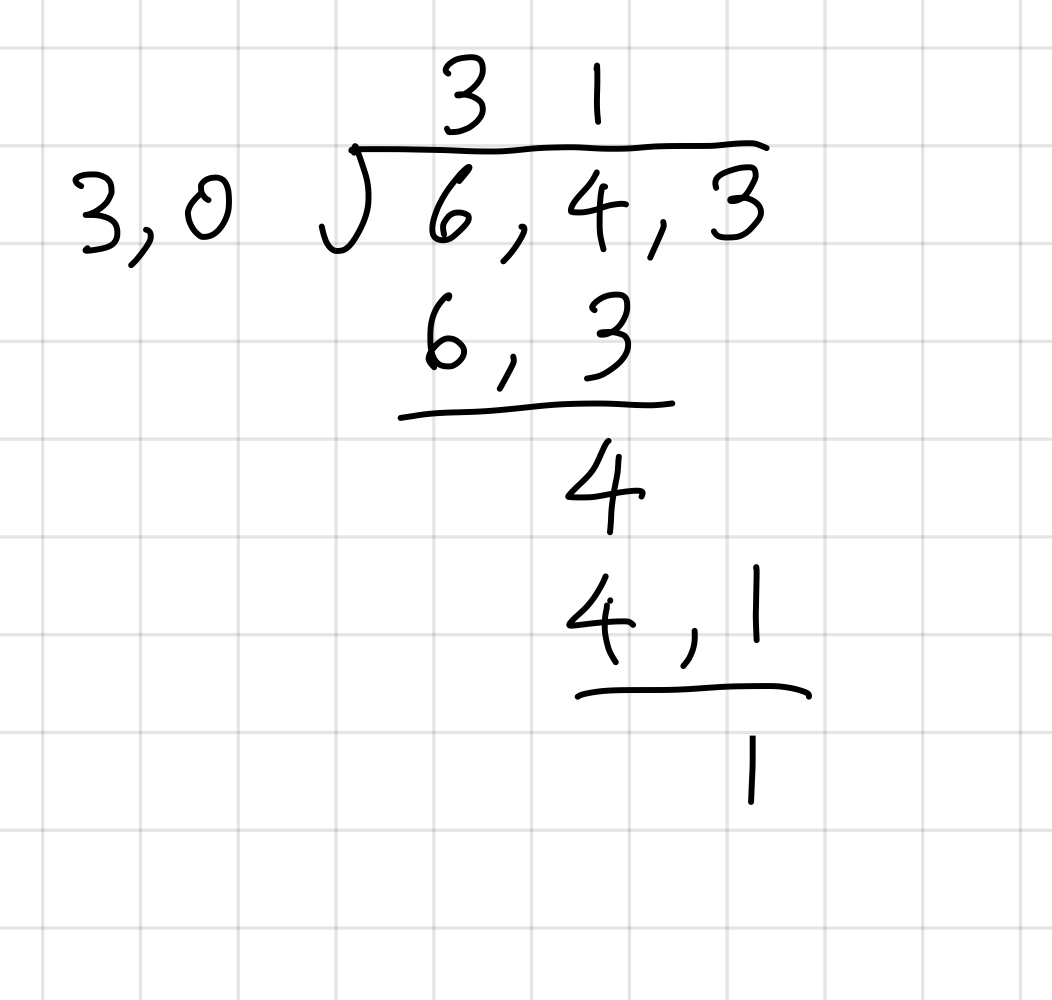 3 1
3,0 √6,4,3
6,3
4
4,1
1